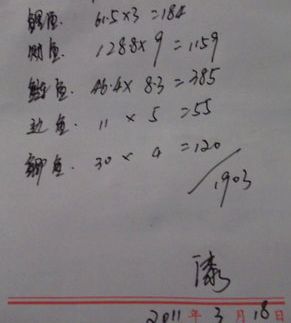 鱼. 61.5×3=184
鱼. 128.8×9=1159
鱼. 46.4×8.3=385
边鱼. 11×5=55
鲫鱼. 30×4=120
1903
2011年3月18日